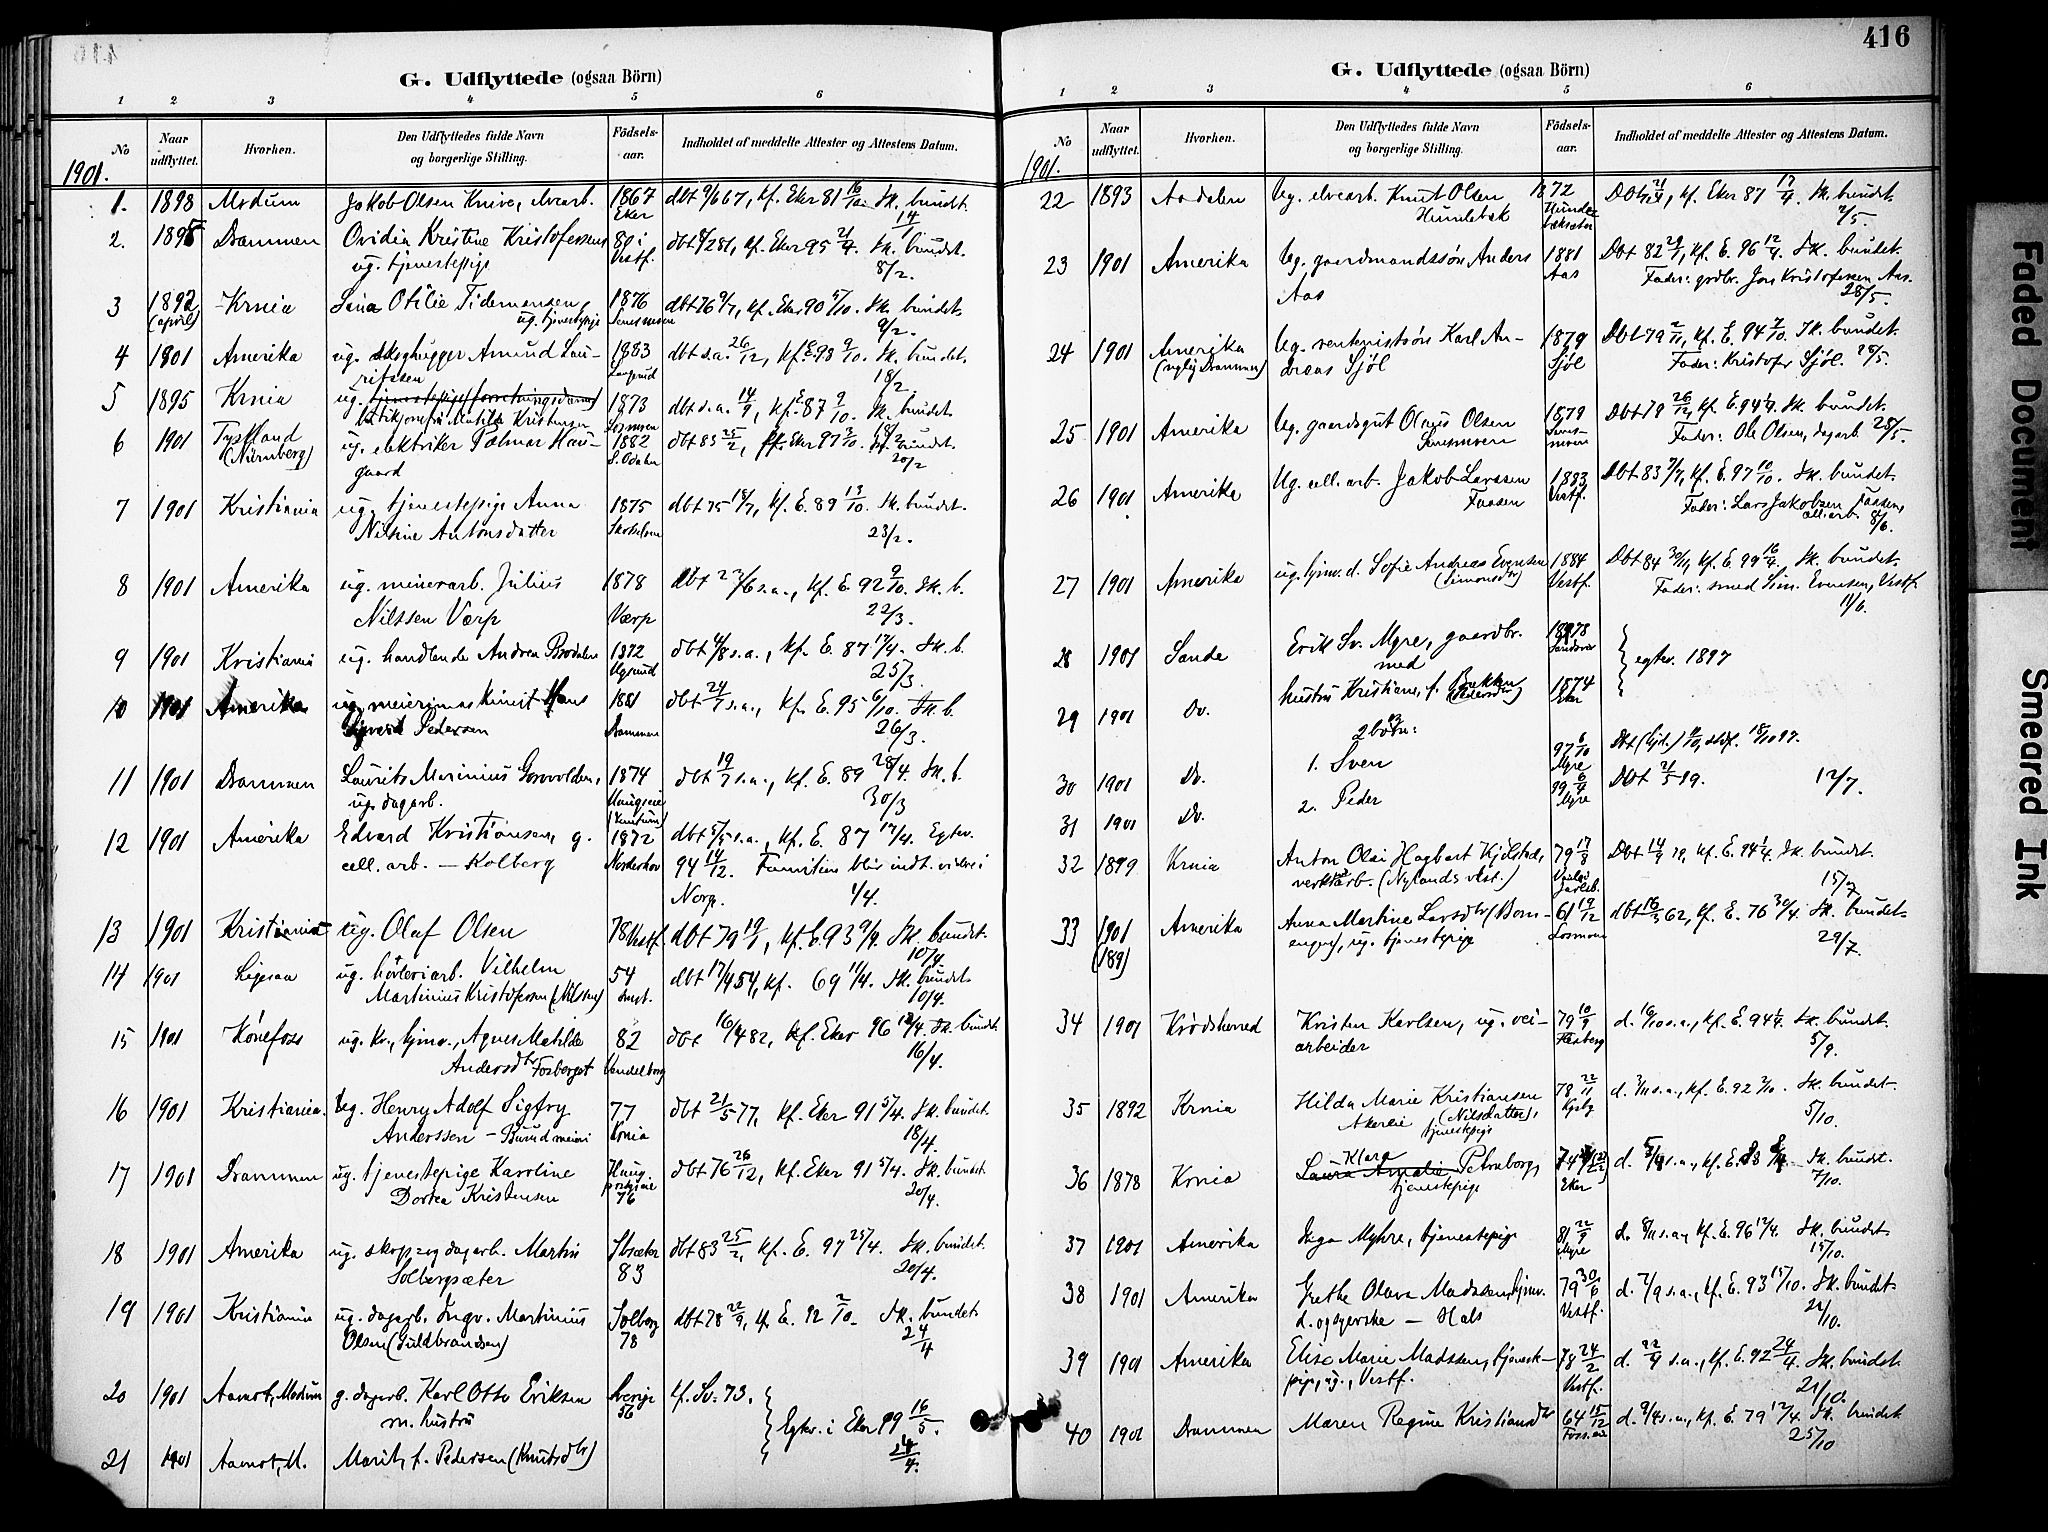 416
G. Udflyttede (ogsaa Börn)
1 2 3 4 5 6
No
Naar udflyttet.
Hvorhen.
Den Udflyttedes fulde Navn og borgerlige Stilling.
Födsels-aar.
Indholdet af meddelte Attester og Attestens Datum.
1901.
1. 1898 Modum Jakob Olsen Knive, elvearb. 1867 Eker dbt 9/6 67, kf. Eker 81 16/10. Sk. bundet. 14/1
2. 1895 Drammen Ovidia Kristine Kristofersen 80 i Vestf. dbt 8/2 81, kf. Eker 95 21/4. Sk. bundet.
ug. tjenestepige 8/2.
3 1892 (april) Krnia Lina Otilie Tidemansen 1876 dbt 76 9/7, kf. Eker 90 5/10. Sk. bundet.
ug. tjenestepige 9/2.
4 1901 Amerika ug. skoghugger Amund Lau- 1883 dbt s.a. 26/12, kf. E. 98 9/10. Sk. bundet.
ritssen 18/2.
5 1895 Krnia ug. butikjomfru Matilde Kristensen 1873 Losmoen dbt s.a. 14/9, kf. E. 87 9/10. Sk. bundet.
6 1901 Tyskland (Nürnberg) ug. elektriker Palmar Hau- 1882 S. Odalen dbt 83 25/2, kf. Eker 97 3/10. Sk. bundet.
gaard 20/2
7 1901 Kristiania ug. tjenestepige Anna 1875 dbt 75 18/7, kf. E. 89 13/10. Sk. bundet.
Nilsine Antonsdatter 23/2.
8 1901 Amerika ug. meieriarb. Julius 1878 dbt 22/6 s.a., kf. E. 92 9/10. Sk. b.
Nilssen Værp Værp 22/3.
9 1901 Kristiania ug. handlende Andrea Brodalen 1872 dbt 4/8 s.a., kf. E. 87 17/4. Sk. b.
25/3
10 1901 Amerika ug. meierimaskinist Hans 1881 dbt 24/7 s.a., kf. E. 95 6/10. Sk. b.
Sigvard Pedersen Drammen 26/3.
11 1901 Drammen Laurits Marinius 1874 dbt 19/7 s.a., kf. E. 89 28/4. Sk. b.
ug. dagarb. 30/3
12 1901 Amerika Edvard Kristiansen, g. 1872 dbt 5/5 s.a., kf. E. 87 17/4. Egtev.
cell. arb. – Kolberg Norderhov 94 14/12. Familien blir indt. videre i
Norg. 1/4.
13 1901 Kristiania ug. Olaf Olsen 78 Vestf. dbt 79 19/1, kf. E. 93 9/9. Sk. bundet.
10/4.
14 1901 Ligesaa ug. høvleriarb. Vilhelm 54 dbt 17/4 54, kf. 69 11/4. Sk. bundet
Martinius Kristofersen (Nilssen) 10/4.
15 1901 Hønefoss ug. kv., tjmø., Agnes Matilde 82 dbt 16/4 82, kf. Eker 96 12/4. Sk. bundet
Andersdtr Fosberget 16/4.
16 1901 Kristiania. Ug. Henry Adolf Sigfry 77 dbt 21/5 77, kf. Eker 91 5/4. Sk. bundet.
Anderssen – Buud meieri Krnia 18/4.
17 1901 Drammen ug. tjenestepige Karoline dbt 76 26/12, kf. Eker 91 5/4. Sk. bundet
Dorka Kristensen 76 20/4.
18 1901 Amerika ug. skog- og dagarb. Martin dbt 83 25/2, kf. E. 97 25/4. Sk. bundet.
Solbergsæter 83 20/4.
19 1901 Kristiania ug. dagarb. Ingv. Martinius Solberg dbt 78 22/9, kf. E. 92 2/10. Sk. bundet
Olsen (Guldbrandsen) 78 24/4
20 1901 Aamot, Modum g. dagarb. Karl Otto Eriksen Sverige 56 kf. Sv. 73.
m. hustru Egtev. i Eker 99 16/5.
21 1901 Aamot, M. Marit, f. Pedersen (Knutsdtr) 24/4.
G. Udflyttede (ogsaa Börn)
1 2 3 4 5 6
No
Naar udflyttet.
Hvorhen.
Den Udflyttedes fulde Navn og borgerlige Stilling.
Födsels-aar.
Indholdet af meddelte Attester og Attestens Datum.
1901.
22 1893 Aadalen Ug. elvearb. Knut Olsen 1872 kf. Eker 87 17/4. Sk. bundet.
Humlebæk 2/5.
23 1901 Amerika Ug. gaardmandssøn Anders 1881 Dbt 82 29/1, kf. E. 96 12/4. Sk. bundet.
Aas Aas Fader: grdbr. Jon Kristofersen Aas.
28/5.
24 1901 Amerika Ug. rentenistsøn Karl An- 1879 Dbt 79 2/11, kf. E. 94 7/10. Sk. bundet.
(nylig Drammen) dreas Sjøl Sjøl Fader: Kristofer Sjøl. 28/5.
25 1901 Amerika Ug. gaardsgut Olaus Olsen 1879 Dbt 79 26/12, kf. E. 94 1/4. Sk. bundet.
Fader: Ole Olsen, dagarb. 28/5.
26 1901 Amerika Ug. cell. arb. Jakob Larssen 1883 Dbt 83 7/7, kf. E. 97 10/10. Sk. bundet.
Faasen Vestf. Fader: Lars Jakobsen Faasen,
cell. arb. 8/6.
27 1901 Amerika ug. tjmø. d. Sofie Andrea Evensen 1884 Dbt 84 30/11, kf. E. 99 16/4. Sk. bundet.
(Simonsdtr) Vestf. Fader: smed Sim. Evensen, Vestf.
11/6.
28 1901 Sande Erik Sv. Myre, gaardbr. 1878
med egtev. 1897
29 1901 Do. hustru Kristiane, f. Bakken 1874 Eker
2 børn:
30 1901 Do. 1. Sven 97 6/10 Myre
31 1901 Do. 2. Peder 99 6/4 Myre 12/7.
32 1899 Krnia Anton Olai Hagbart Kjølstad, 79 17/8 Dbt 14/9 79, kf. E. 94 1/4. Sk. bundet.
verkstarb. (Nylands vest.) 15/7
33 1901 (189) Amerika Anna Martine Larsdtr (Born- 61 19/12 dbt 16/3 62, kf. E. 76 30/4. Sk. bundet
engen), ug. tjenestepige Losmoen 29/7.
34 1901 Krødsherred Kristen Karlsen, ug. vei- 79 10/9 d. 16/10 s.a., kf. E. 94 1/4. Sk. bundet.
arbeider 5/9.
35 1892 Krnia Hilda Marie Kristiansen 78 22/11 kf. E. 92 2/10. Sk. bundet.
(Nilsdatter), tjenestepige 5/10.
36 1878 Krnia Klara Petraborg, d. s.a., kf. E. 88 Sk. bundet.
tjenestepige Eker 7/10.
37 1901 Amerika Inga Myhre, tjenestepige 81 22/9 Myre d. 8/11 s.a., kf. E. 96 12/4. Sk. bundet.
15/10.
38 1901 Amerika Grethe Olava Madssen, tjenr. 79 30/6 d. 7/9 s.a., kf. E. 93 15/10. Sk. bundet
d. og syerske – Hals Vestf. 21/10.
39 1901 Amerika Elise Marie Madssen, tjenest- 78 24/2 d. 22/4 s.a., kf. E. 92 24/4. Sk. bundet
pige, ug., Vestf. Vestf. 21/10.
40 1901 Drammen Maren Regine Kristiansdtr 64 15/12 d. 9/4 s.a., kf. E. 79 12/4. Sk. bundet
25/10
Faded Document
Smeared Ink